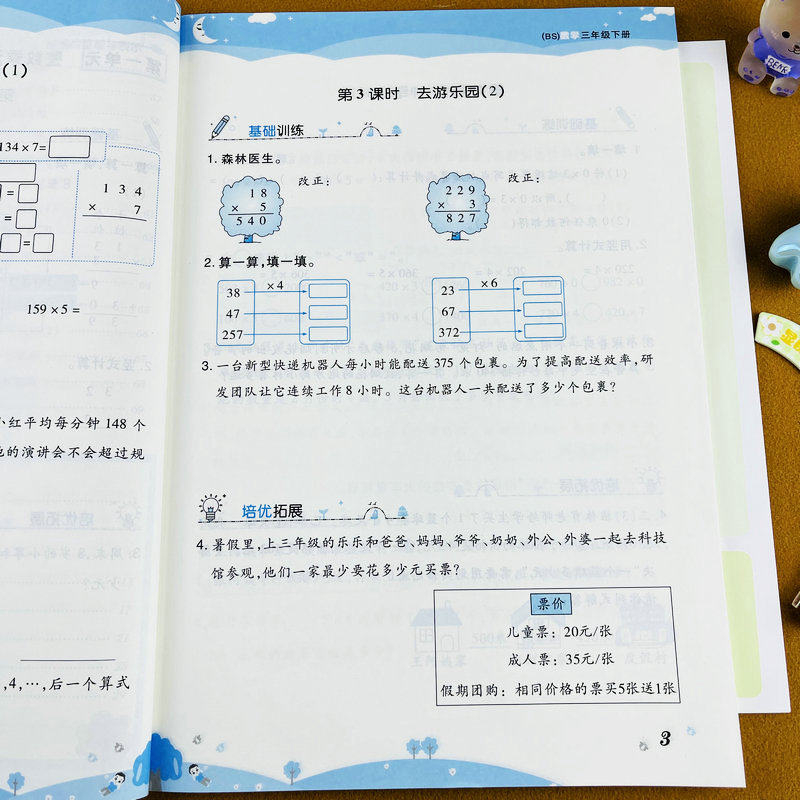 (1)
134×7=
1 3 4
× 7
=
=
=
159×5=
小红平均每分钟 148 个
的演讲会不会超过规
,4,…,后一个算式
(BS)数学三年级下册
第 3 课时 去游乐园(2)
基础训练
1. 森林医生。
1 8
× 5
5 4 0
改正:
2 2 9
× 3
8 2 7
改正:
2. 算一算,填一填。
38
47
257
×4
23
67
372
×6
3. 一台新型快递机器人每小时能配送 375 个包裹。为了提高配送效率,研
发团队让它连续工作 8 小时。这台机器人一共配送了多少个包裹?
培优拓展
4. 暑假里,上三年级的乐乐和爸爸、妈妈、爷爷、奶奶、外公、外婆一起去科技
馆参观,他们一家最少要花多少元买票?
票价
儿童票:20元/张
成人票:35元/张
假期团购:相同价格的票买5张送1张
3